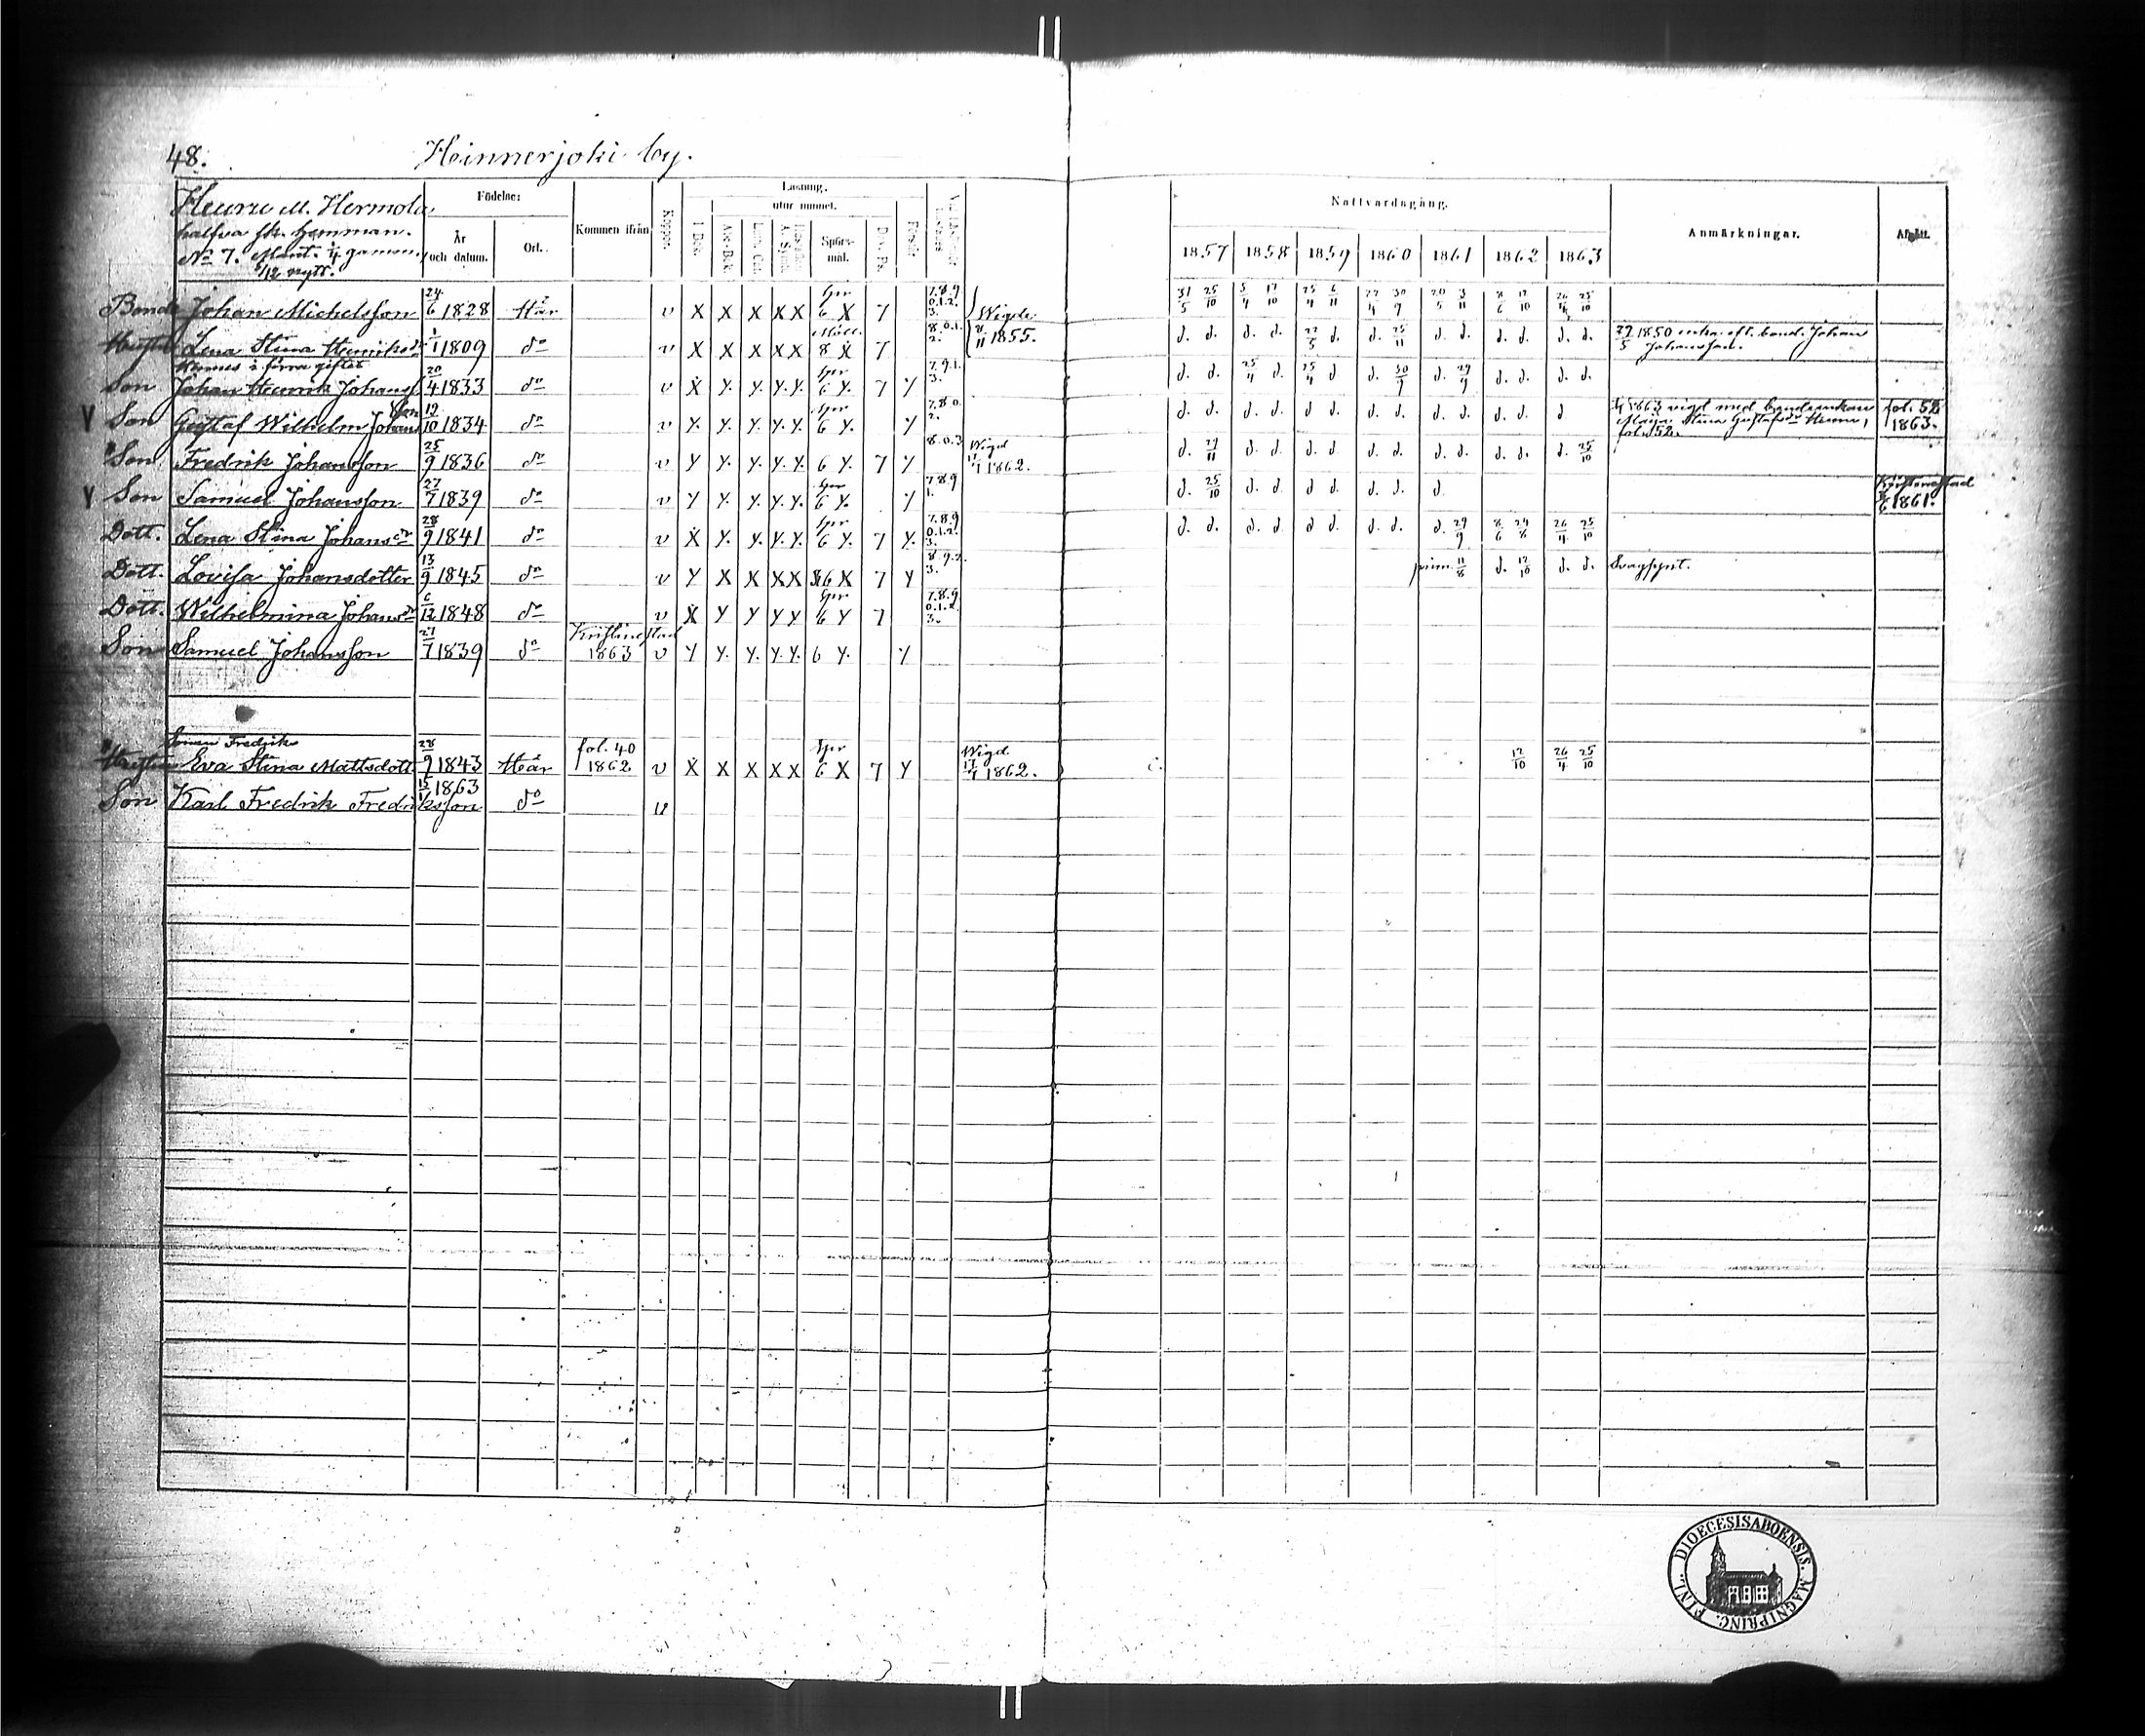 48. Hinnerjoki by.
Heurru M. Hermola,
halfva sk. hemman.
No 7. Mant. 1/4 gammn.
5/12 nytt.
Födelse:
År och datum.
Ort.
Kommen ifrån
Koppor.
Läsning.
I Bok.
utur minnet.
Abc-Bok.
Luth. Cat.
Spörsmål.
Dav. Ps.
Förstår
Nattvardsgång.
1857 1858 1859 1860 1861 1862 1863
Anmärkningar.
Afgått.
Bond Johan Michelsson 24/6 1828 Här v X X X X X Spr 6 X 7 7.8.9 0.1.2. 3. Wigde 31/5 25/10 5/4 17/10 25/4 6/11 30/9 20/5 3/11 8/6 12/10 26/4 25/10
Hustru Lena Stina Henriksdr 1/1 1809 do v X X X X X 8 X 7 8.0.1. 2. 8/11 1855. d. d. d. d. 22/5 d. d. 25/11 d. d. d. d. d. d. 27/5 1850 enka eft. bond. Johan Johansson.
Hennes i förra giftet
Son Johan Henrik Johanss 20/4 1833 do v X Y. Y. Y. Y. Spr 6 Y. 7 Y 7.9.1. 3. d. d. 25/4 d. 25/4 d d. 30/9 d. 29/9 d. d. d. d.
V Son Gustaf Wilhelm Johansson 19/10 1834 do v Y. Y. Y. Y. Y. Spr 6 Y. Y 7.8.0. 2. d. d. d. d. d. d. d. d. d. d. d. d. d 1863 vigd med bondeenkan Maja Stina Gustafsdr Heurru, fol. 52. fol. 52 1863.
Son Fredrik Johansson 25/9 1836 do v Y Y. Y. Y. Y. 6 Y. 7 Y 8.0.3 Wigd 1862. d. 27/11 d. d. d. d. d. d. d. d. d. d. d. 25/10
V Son Samuel Johansson 27/7 1839 do v Y Y. Y. Y. Y. Spr 6 Y. Y 7.8.9 1. d. 25/10 d. d. d. d. d. d. d. Kristinestad 1861.
Dott. Lena Stina Johansdr 28/9 1841 do v X Y. Y. Y. Y. Spr 6 Y. 7 Y. 7.8.9 0.1.2. 3. d. d. d. d. d d. d. d. d. 29/9 8/6 24/8 26/4 25/10
Dott. Lovisa Johansdotter 13/9 1845 do v Y X X X X 6 X 7 Y 8.9.2. 3. prim. 11/8 d. 12/10 d. d. Svagsynt.
Dott. Wilhelmina Johansdr 6/12 1848 do v X Y Y Y Y Spr 6 Y 7 7.8.9 0.1.2. 3.
Son Samuel Johansson 27/7 1839 do Kristinestad 1863 v Y Y. Y. Y. Y. 6 Y. Y
Sonen Fredriks
Hustru Eva Stina Mattsdott. 28/9 1843 Här fol. 40 1862 v X X X X X Spr 6 X 7 Y Wigd 1862. 12/10 26/4 25/10
Son Karl Fredrik Fredriksson 1863 do v
DIOECESIS ABOENSIS. MAGNI PRINC. FINL.